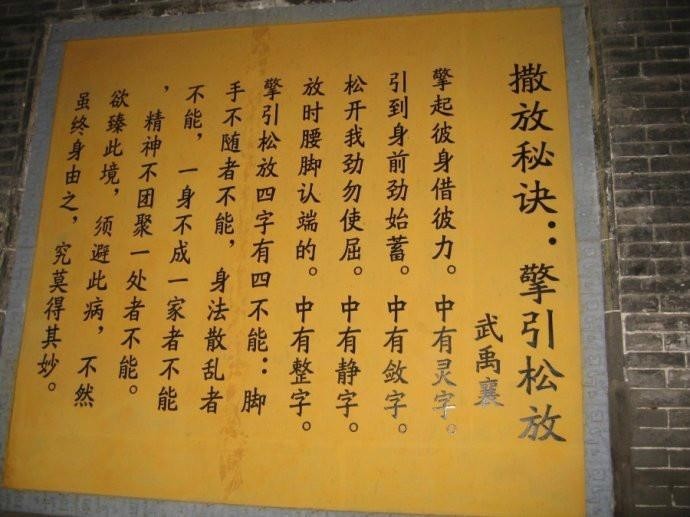 撒放秘诀：擎引松放
武禹襄
擎起彼身借彼力。中有灵字。
引到身前劲始蓄。中有敛字。
松开我劲勿使屈。中有静字。
放时腰脚认端的。中有整字。
擎引松放四字有四不能：脚
手不随者不能，身法散乱者
不能，一身不成一家者不能
，精神不团聚一处者不能。
欲臻此境，须避此病，不然
虽终身由之，究莫得其妙。